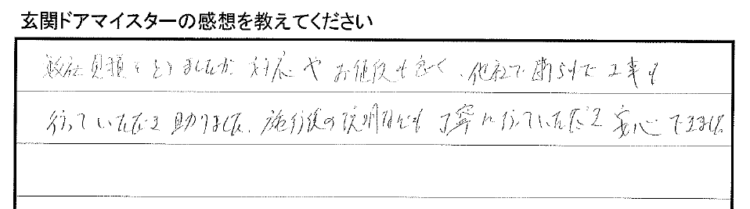 玄関ドアマイスターの感想を教えてください
数社見積をとりましたが 対応やお値段も良く、他社で断られた工事も
行っていただき助かりました。施行後の説明なども丁寧に行っていただき安心できました